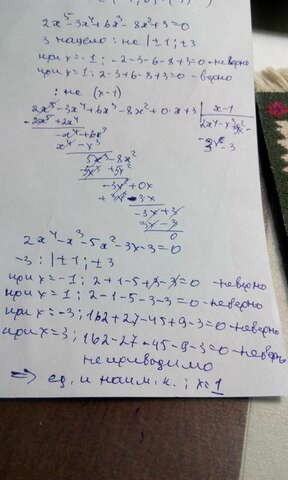 2x⁵-3x⁴+6x³-8x²+3=0
3 нацело: не |±1; ±3
при x=-1: -2-3-6-8+3=0 - неверно
при x=1: 2-3+6-8+3=0 - верно
: не (x-1)
2x⁵-3x⁴+6x³-8x²+0·x+3 | x-1
2x⁵+2x⁴
-x⁴+6x³
x⁴-x³
5x³-8x²
-3x²+0x
-3x
-3x+3
3x-3
0
2x⁴-x³-5x²-3x-3=0
-3: |±1; ±3
при x=-1: 2+1-5+3-3=0 - неверно
при x=1: 2-1-5-3-3=0 - неверно
при x=-3; 162+27-45+9-3=0 - неверно
при x=3; 162-27-45-9-3=0 - неверно
неприводимо
⇒ ед. и наим. к.; x=1